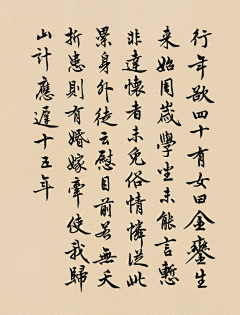 行年欲四十有女曰金鑾生
来始周歲學坐未能言慙
非達懷者未免俗情憐從此
累身外徒云慰目前若無夭
折患則有婚嫁牽使我歸
山計應遲十五年